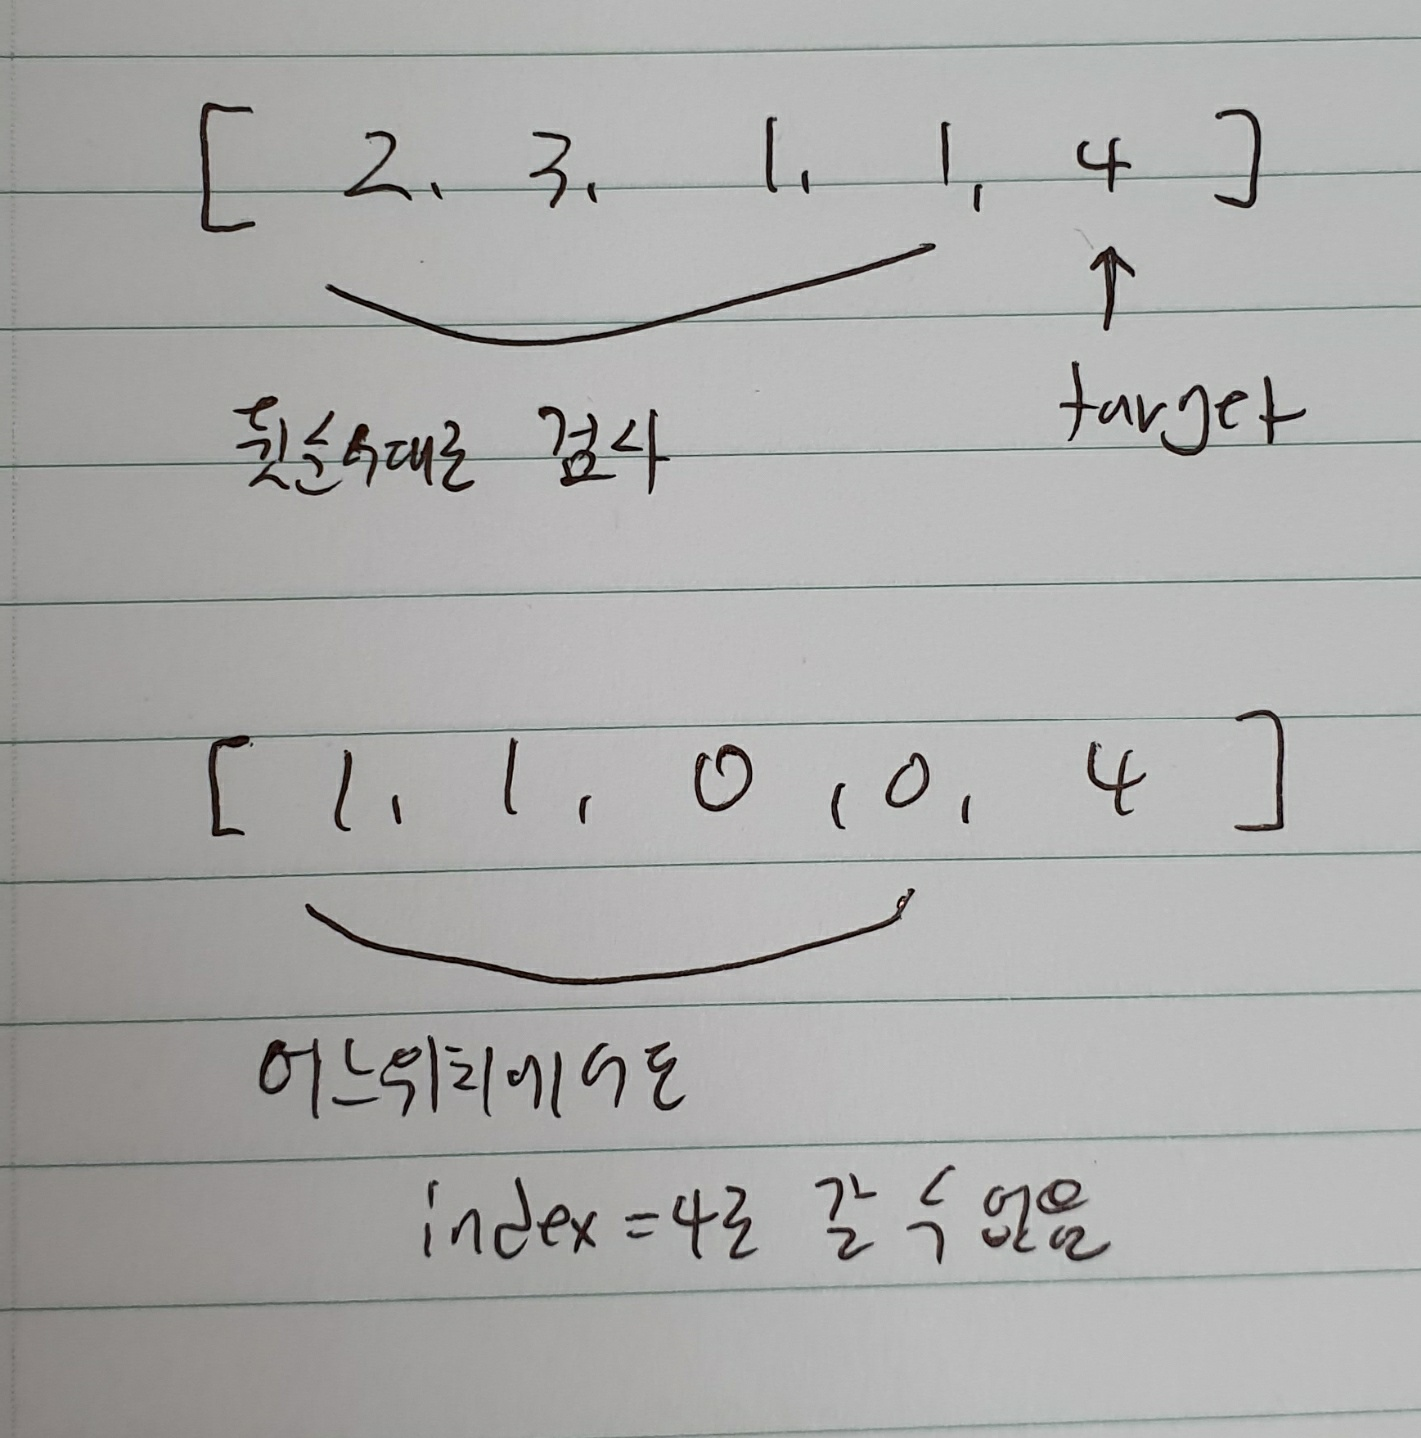 [ 2, 3, 1, 1, 4 ]
↑
뒷순서대로 검사
target
[ 1, 1, 0, 0, 4 ]
어느위치에서도
index = 4로 갈 수 없음